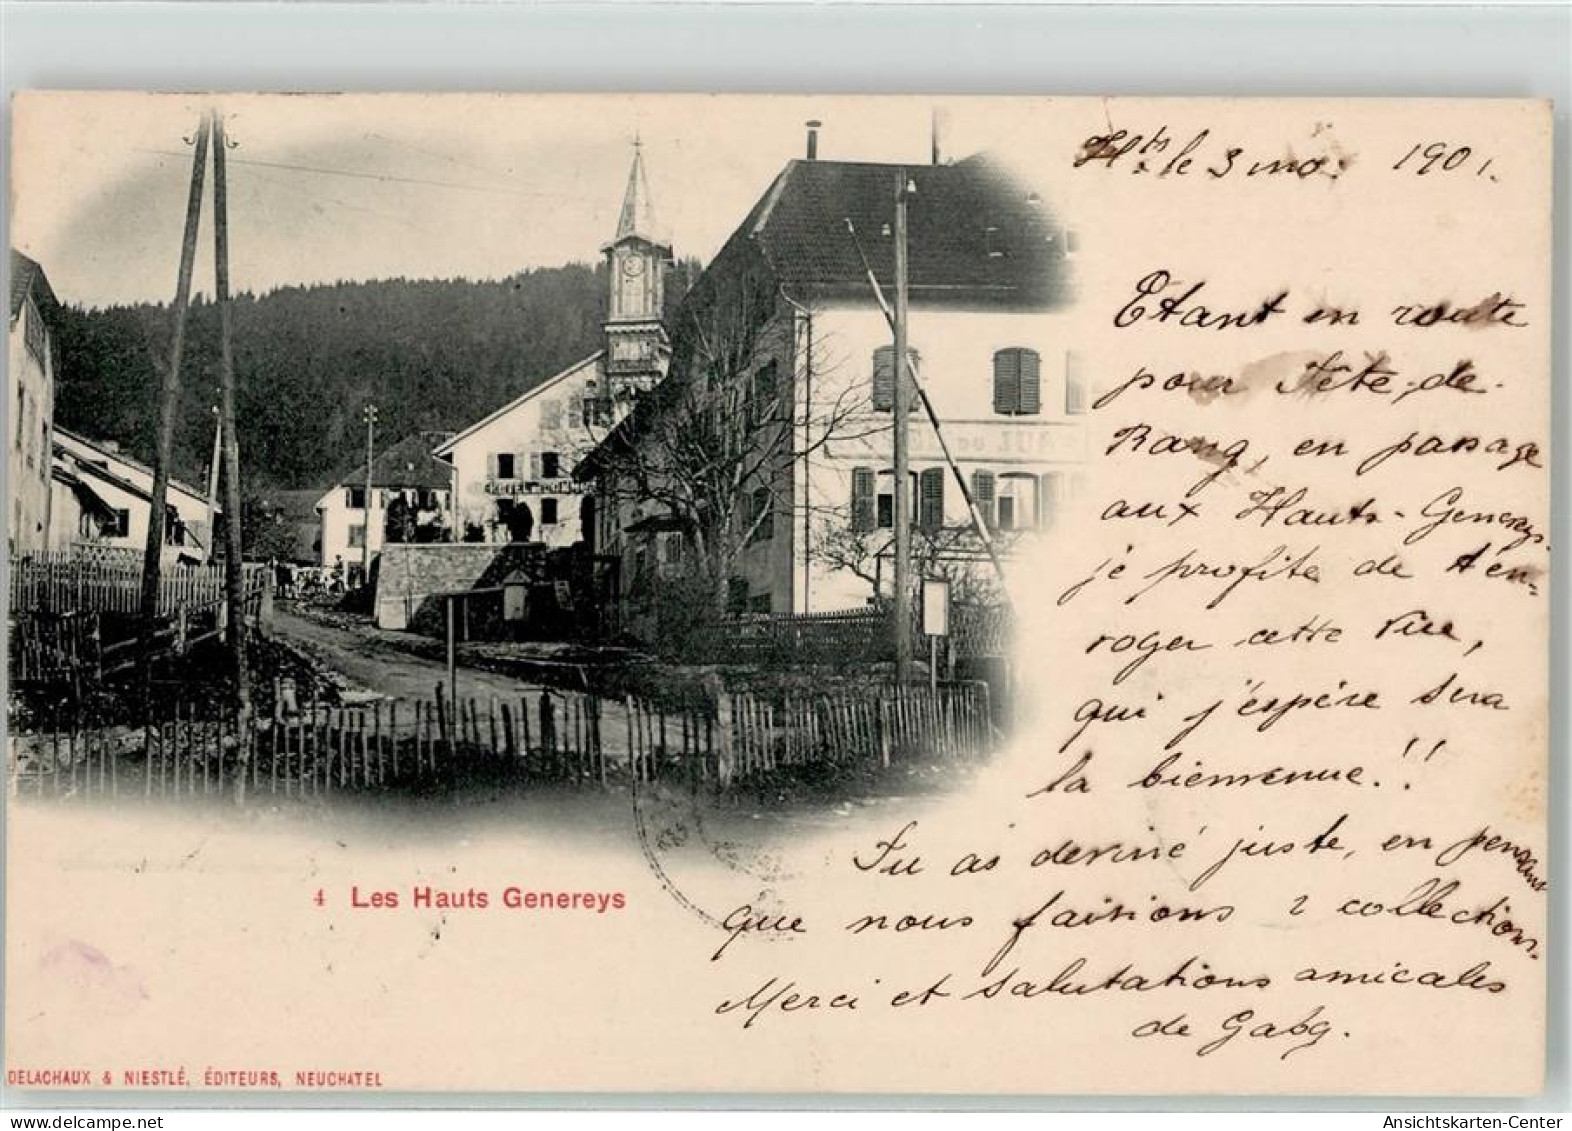 Hts le 3 mo. 1901.
Etant en route
pour Tête-de-
Rang, en passage
aux Hauts-Genereys
je profite de t'en-
roger cette vue,
qui j'espère sera
la bienvenue!!
Tu as deviné juste, en pensant
que nous faisions 2 collections.
Merci et salutations amicales
de Gaby.
HOTEL COMMU
4 Les Hauts Genereys
DELACHAUX & NIESTLÉ, ÉDITEURS, NEUCHATEL
www.delcampe.net
Ansichtskarten-Center